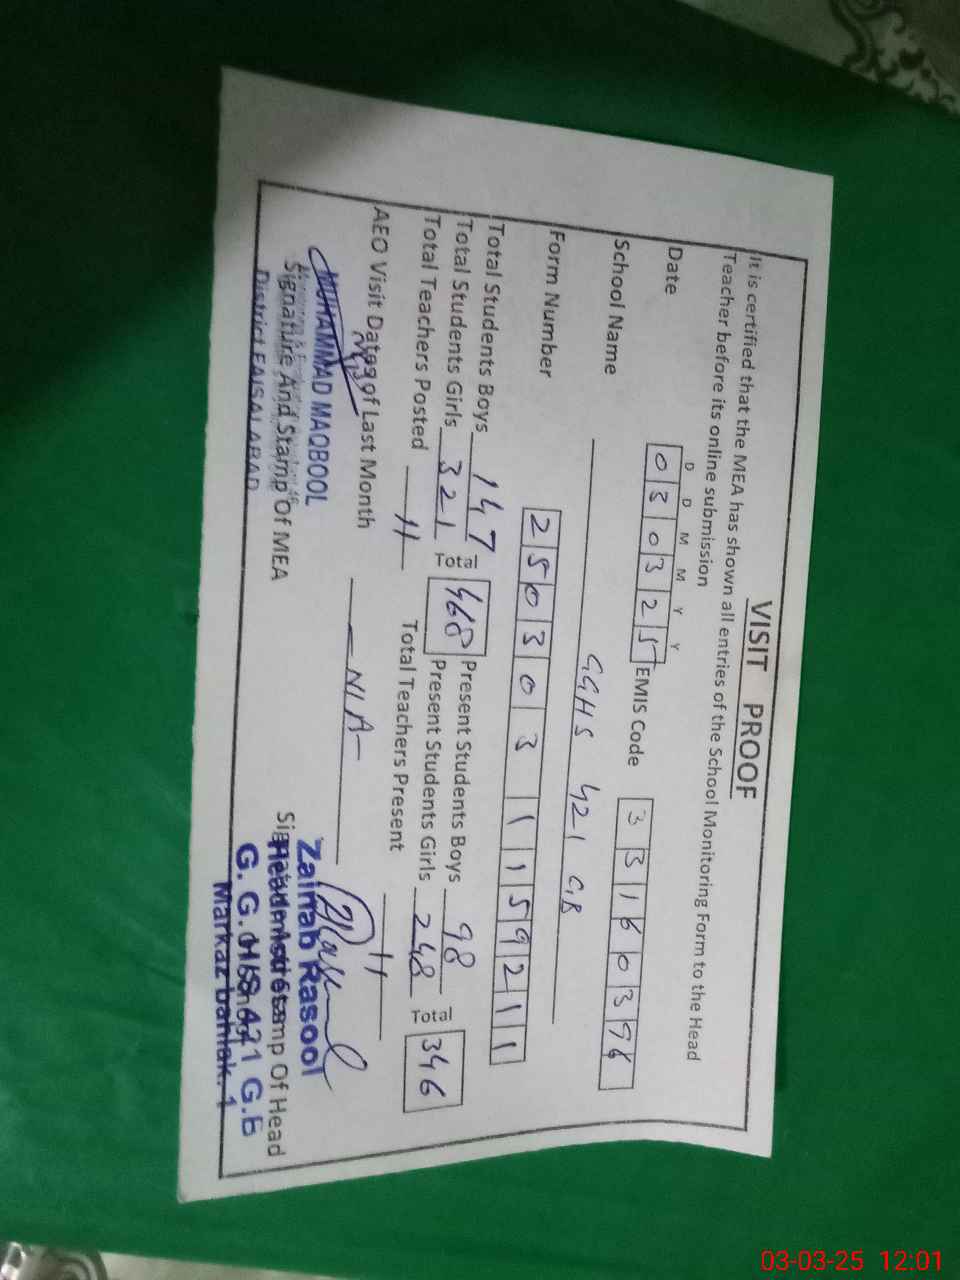 VISIT PROOF
It is certified that the MEA has shown all entries of the School Monitoring Form to the Head
Teacher before its online submission
D D M M Y Y
Date 0 3 0 3 2 5 EMIS Code 3 3 1 6 0 3 9 8
School Name GGHS 421 GB
Form Number 2 5 0 3 0 3 1 1 5 9 2 1 1
Total Students Boys 147 Total 468 Present Students Boys 98 Total 346
Total Students Girls 321 Present Students Girls 248
Total Teachers Posted 11 Total Teachers Present 11
AEO Visit Dates of Last Month -N/A-
MUHAMMAD MAQBOOL
Signature And Stamp Of MEA
District FAISALABAD
Zainab Rasool
Headmistress
Signature And Stamp Of Head
G. G. H/S 421 G.B
Markaz 
03-03-25 12:01